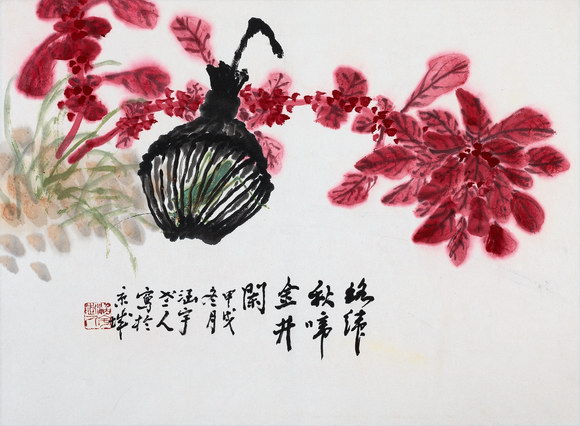 絡緯
秋啼
金井
闌
甲戌
冬月
涵宇
老人
寫於
京城